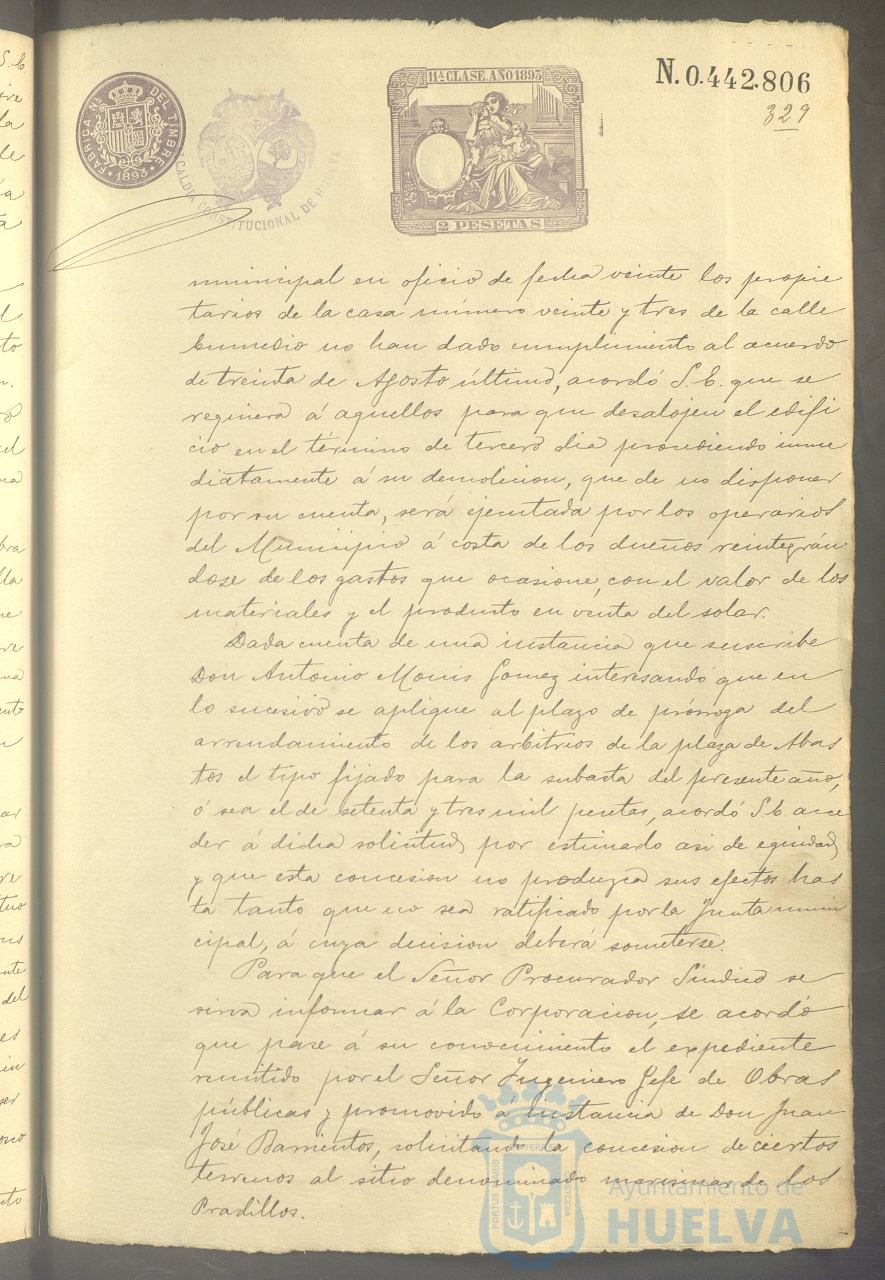 FABRICA N.L DEL TIMBRE
1893
ALCALDIA CONSTITUCIONAL DE HUELVA
11ª CLASE. AÑO 1893
2 PESETAS
N. 0.442.806
329
municipal en oficio de fecha veinte los propie
tarios de la casa número veinte y tres de la calle
Enmedio no han dado cumplimiento al acuerdo
de treinta de Agosto último, acordó S. E. que se
requiera á aquellos para que desalojen el edifi
cio en el término de tercero dia procediendo inme
diatamente á su demolicion, que de no disponer
por su cuenta, será ejecutada por los operarios
del Municipio á costa de los dueños reintegrán
dose de los gastos que ocasione, con el valor de los
materiales y el producto en venta del solar.
Dada cuenta de una instancia que suscribe
Don Antonio Gomez interesando que en
lo sucesivo se aplique al plazo de prórroga del
arrendamiento de los arbitrios de la plaza de Abas
tos el tipo fijado para la subasta del presente año,
ó sea el de setenta y tres mil pesetas, acordó S. E. acce
der á dicha solicitud por estimarlo asi de equidad
y que esta concesion no produzca sus efectos has
ta tanto que no sea ratificado por la Junta muni
cipal, á cuya decision deberá someterse.
Para que el Señor Procurador Síndico se
sirva informar á la Corporacion, se acordó
que pase á su conocimiento el expediente
remitido por el Señor Ingeniero Gefe de Obras
públicas y promovido á instancia de Don Juan
José Barrientos, solicitando la concesion de ciertos
terrenos al sitio denominado marismas de los
Pradillos.
PORTUS MARIS ET TERRAE CUSTODIA
Ayuntamiento de
HUELVA